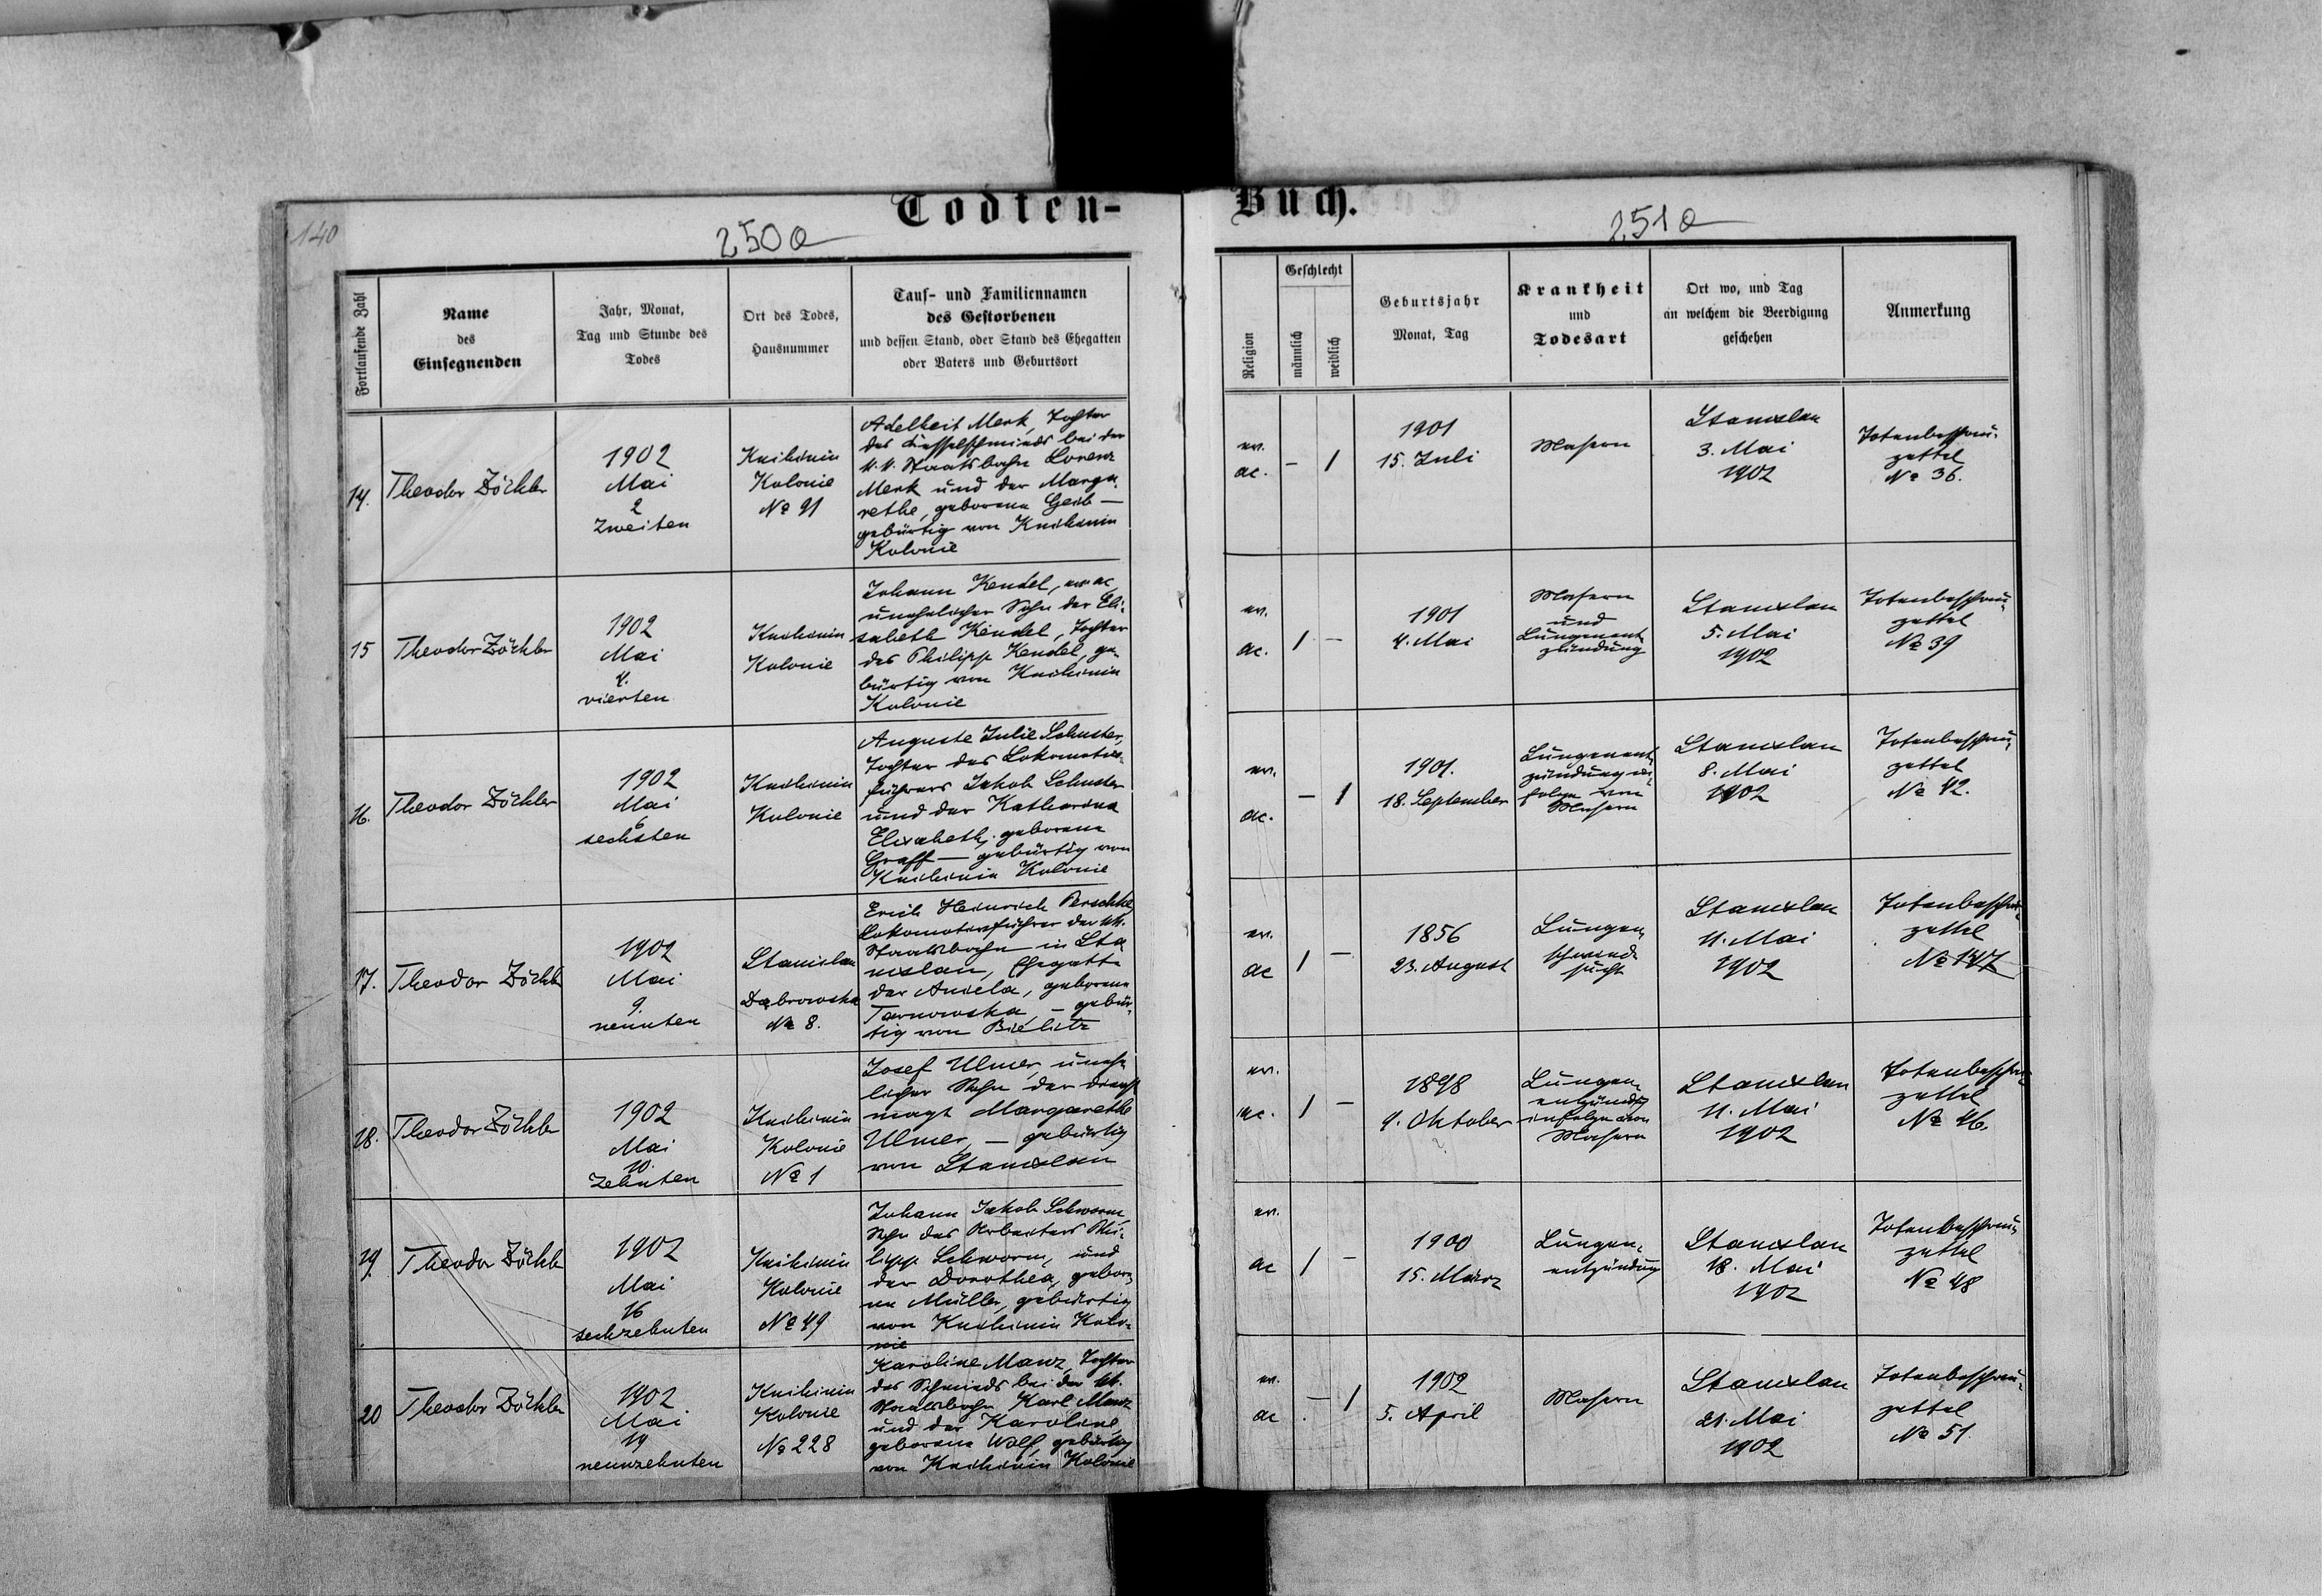 140
Todten-
Buch.
250a
251a
Fortlaufende Zahl
Name
des
Einsegnenden
Jahr, Monat,
Tag und Stunde des
Todes
Ort des Todes,
Hausnummer
Tauf- und Familiennamen
des Gestorbenen
und dessen Stand, oder Stand des Ehegatten
oder Vaters und Geburtsort
Religion
Geschlecht
männlich
weiblich
Geburtsjahr
Monat, Tag
Krankheit
und
Todesart
Ort wo, und Tag
an welchem die Beerdigung
geschehen
Anmerkung
14.
Theodor Zöckler
1902
Mai
2
zweiten
Knihinin
Kolonie
No 91
Adelheit Merk, Tochter
des Kesselschmieds bei der
k.k. Staatsbahn Lorenz
Merk und der Marga-
rethe, geborene Geib —
gebürtig von Knihinin
Kolonie
ev.
ac.
- 1
1901
15. Juli
Masern
Stanislau
3. Mai
1902
Totenbeschau-
zettel
No 36.
15
Theodor Zöckler
1902
Mai
4.
vierten
Knihinin
Kolonie
Johann Kendel, ev. ac
unehelicher Sohn der Eli-
sabeth Kendel, Tochter
des Philipp Kendel, ge-
bürtig von Knihinin
Kolonie
ev.
ac.
1 -
1901
4. Mai
Masern
und
Lungenent-
zündung
Stanislau
5. Mai
1902
Totenbeschau-
zettel
No 39
16.
Theodor Zöckler
1902
Mai
6
sechsten
Knihinin
Kolonie
Auguste Julie Schuster,
Tochter des Lokomotiv-
führers Jakob Schuster
und der Katharina
Elisabeth, geborene
Graff — gebürtig von
Knihinin Kolonie
ev.
ac.
- 1
1901.
18. September
Lungenent-
zündung in-
folge von
Masern
Stanislau
8. Mai
1902
Totenbeschau-
zettel
No 42.
17.
Theodor Zöckler
1902
Mai
9.
neunten
Stanislau
Dąbrowska
No 8.
Erich Heinrich Perschke
Lokomotivführer der kk.
Staatsbahn in Sta-
nislau, Ehegatte
der Aniela, geborene
Tarnowska, — gebür-
tig von Bielitz
ev.
ac
1 -
1856
23. August
Lungen-
schwind-
sucht
Stanislau
11. Mai
1902
Totenbeschau-
zettel
No 147
18.
Theodor Zöckler
1902
Mai
10.
zehnten
Knihinin
Kolonie
No 1
Josef Ulmer, unehe-
licher Sohn der Dienst-
magt Margarethe
Ulmer, — gebürtig
von Stanislau
ev.
ac.
1 -
1898
4. Oktober
Lungen-
entzündg
infolge von
Masern
Stanislau
11. Mai
1902
Totenbeschau-
zettel
No 46.
19.
Theodor Zöckler
1902
Mai
16
sechzehnten
Knihinin
Kolonie
No 49
Johann Jakob Schworm,
Sohn des Arbeiters Phi-
lipp Schworm, und
der Dorothea, gebore-
ne Müller, gebürtig
von Knihinin Kolo-
nie
ev.
ac
1 -
1900
15. März
Lungen-
entzündung
Stanislau
18. Mai
1902
Totenbeschau-
zettel
No 48
20
Theodor Zöckler
1902
Mai
19
neunzehnten
Knihinin
Kolonie
No 228
Karoline Manz, Tochter
des Schmieds bei der kk.
Staatsbahn Karl Manz
und der Karoline,
geborene Wolf, gebürtig
von Knihinin Kolonie
ev.
ac
- 1
1902
5. April
Masern
Stanislau
21. Mai
1902
Totenbeschau-
zettel
No 51.